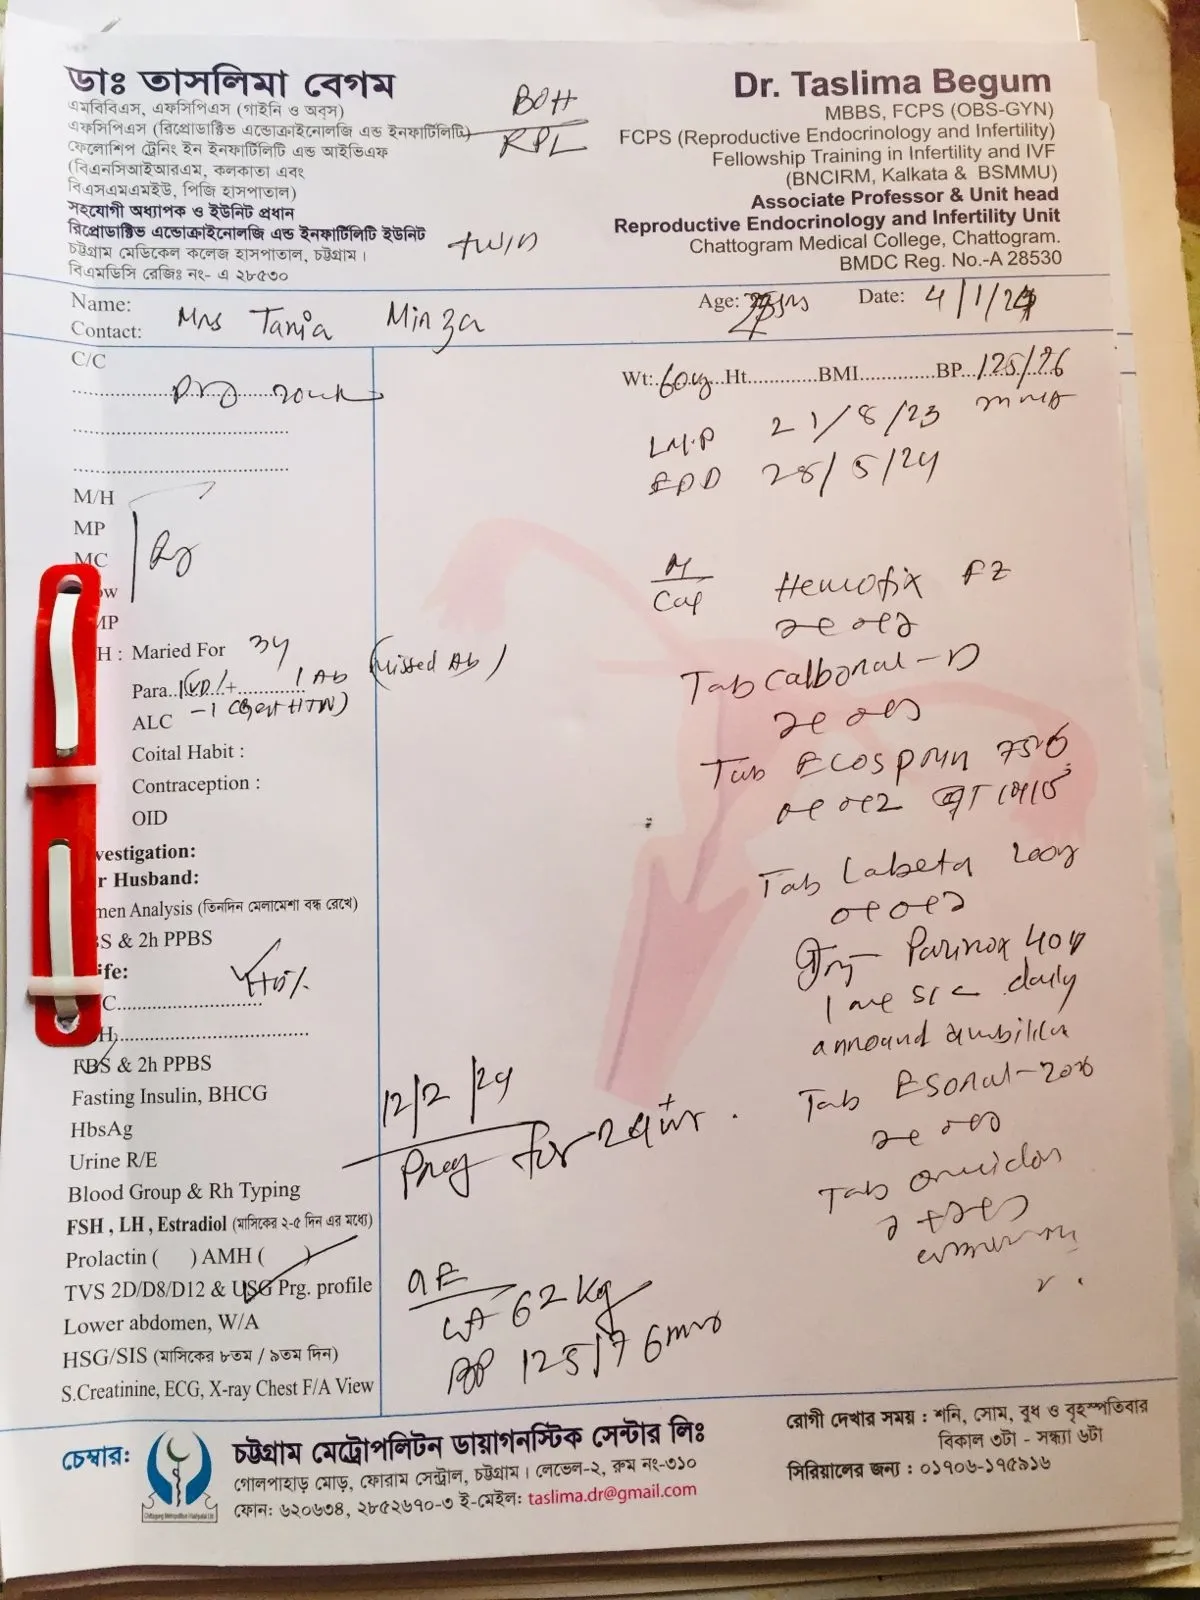 ডাঃ তাসলিমা বেগম
এমবিবিএস, এফসিপিএস (গাইনি ও অবস)
এফসিপিএস (রিপ্রোডাক্টিভ এন্ডোক্রাইনোলজি এন্ড ইনফার্টিলিটি)
ফেলোশিপ ট্রেনিং ইন ইনফার্টিলিটি এন্ড আইভিএফ
(বিএনসিআইআরএম, কলকাতা এবং
বিএসএমএমইউ, পিজি হাসপাতাল)
সহযোগী অধ্যাপক ও ইউনিট প্রধান
রিপ্রোডাক্টিভ এন্ডোক্রাইনোলজি এন্ড ইনফার্টিলিটি ইউনিট
চট্টগ্রাম মেডিকেল কলেজ হাসপাতাল, চট্টগ্রাম।
বিএমডিসি রেজিঃ নং- এ ২৮৫৩০
BOH
RPL
twin
Dr. Taslima Begum
MBBS, FCPS (OBS-GYN)
FCPS (Reproductive Endocrinology and Infertility)
Fellowship Training in Infertility and IVF
(BNCIRM, Kalkata & BSMMU)
Associate Professor & Unit head
Reproductive Endocrinology and Infertility Unit
Chattogram Medical College, Chattogram.
BMDC Reg. No.-A 28530
Name: Mrs Tania Minza
Contact:
Age: Date: 4/1/24
C/C
M/H
MP
MC
MP
H : Maried For 3y
Para.. 1 (VD) + 1 Ab (Missed Ab)
ALC - 1
Coital Habit :
Contraception :
OID
vestigation:
r Husband:
men Analysis (তিনদিন মেলামেশা বন্ধ রেখে)
BS & 2h PPBS
ife:
C Hb%
H
RBS & 2h PPBS
Fasting Insulin, BHCG
HbsAg
Urine R/E
Blood Group & Rh Typing
FSH , LH , Estradiol (মাসিকের ২-৫ দিন এর মধ্যে)
Prolactin ( ) AMH ( )
TVS 2D/D8/D12 & USG Prg. profile
Lower abdomen, W/A
HSG/SIS (মাসিকের ৮তম / ৯তম দিন)
S.Creatinine, ECG, X-ray Chest F/A View
12/2/24
Preg for 24+ wk.
OE
Wt 62 Kg
BP 125/76 mm
Wt: 60 kg Ht BMI BP 125/76
LMP 21/8/23
EDD 28/5/24
Cap Hemofix FZ
Tab Calboral-D
Tab Ecosprin 75
Tab Labeta 200
Inj- Parinox 40
1 s/c daily
around
Tab Esoral-20
Tab
চেম্বার:
চট্টগ্রাম মেট্রোপলিটন ডায়াগনস্টিক সেন্টার লিঃ
গোলপাহাড় মোড়, ফোরাম সেন্ট্রাল, চট্টগ্রাম। লেভেল-২, রুম নং-৩১০
ফোন: ৬২০৬৩৪, ২৮৫২৬৭০-৩ ই-মেইল: taslima.dr@gmail.com
রোগী দেখার সময় : শনি, সোম, বুধ ও বৃহস্পতিবার
বিকাল ৩টা - সন্ধ্যা ৬টা
সিরিয়ালের জন্য : ০১৭০৬-১৭৫৯১৬